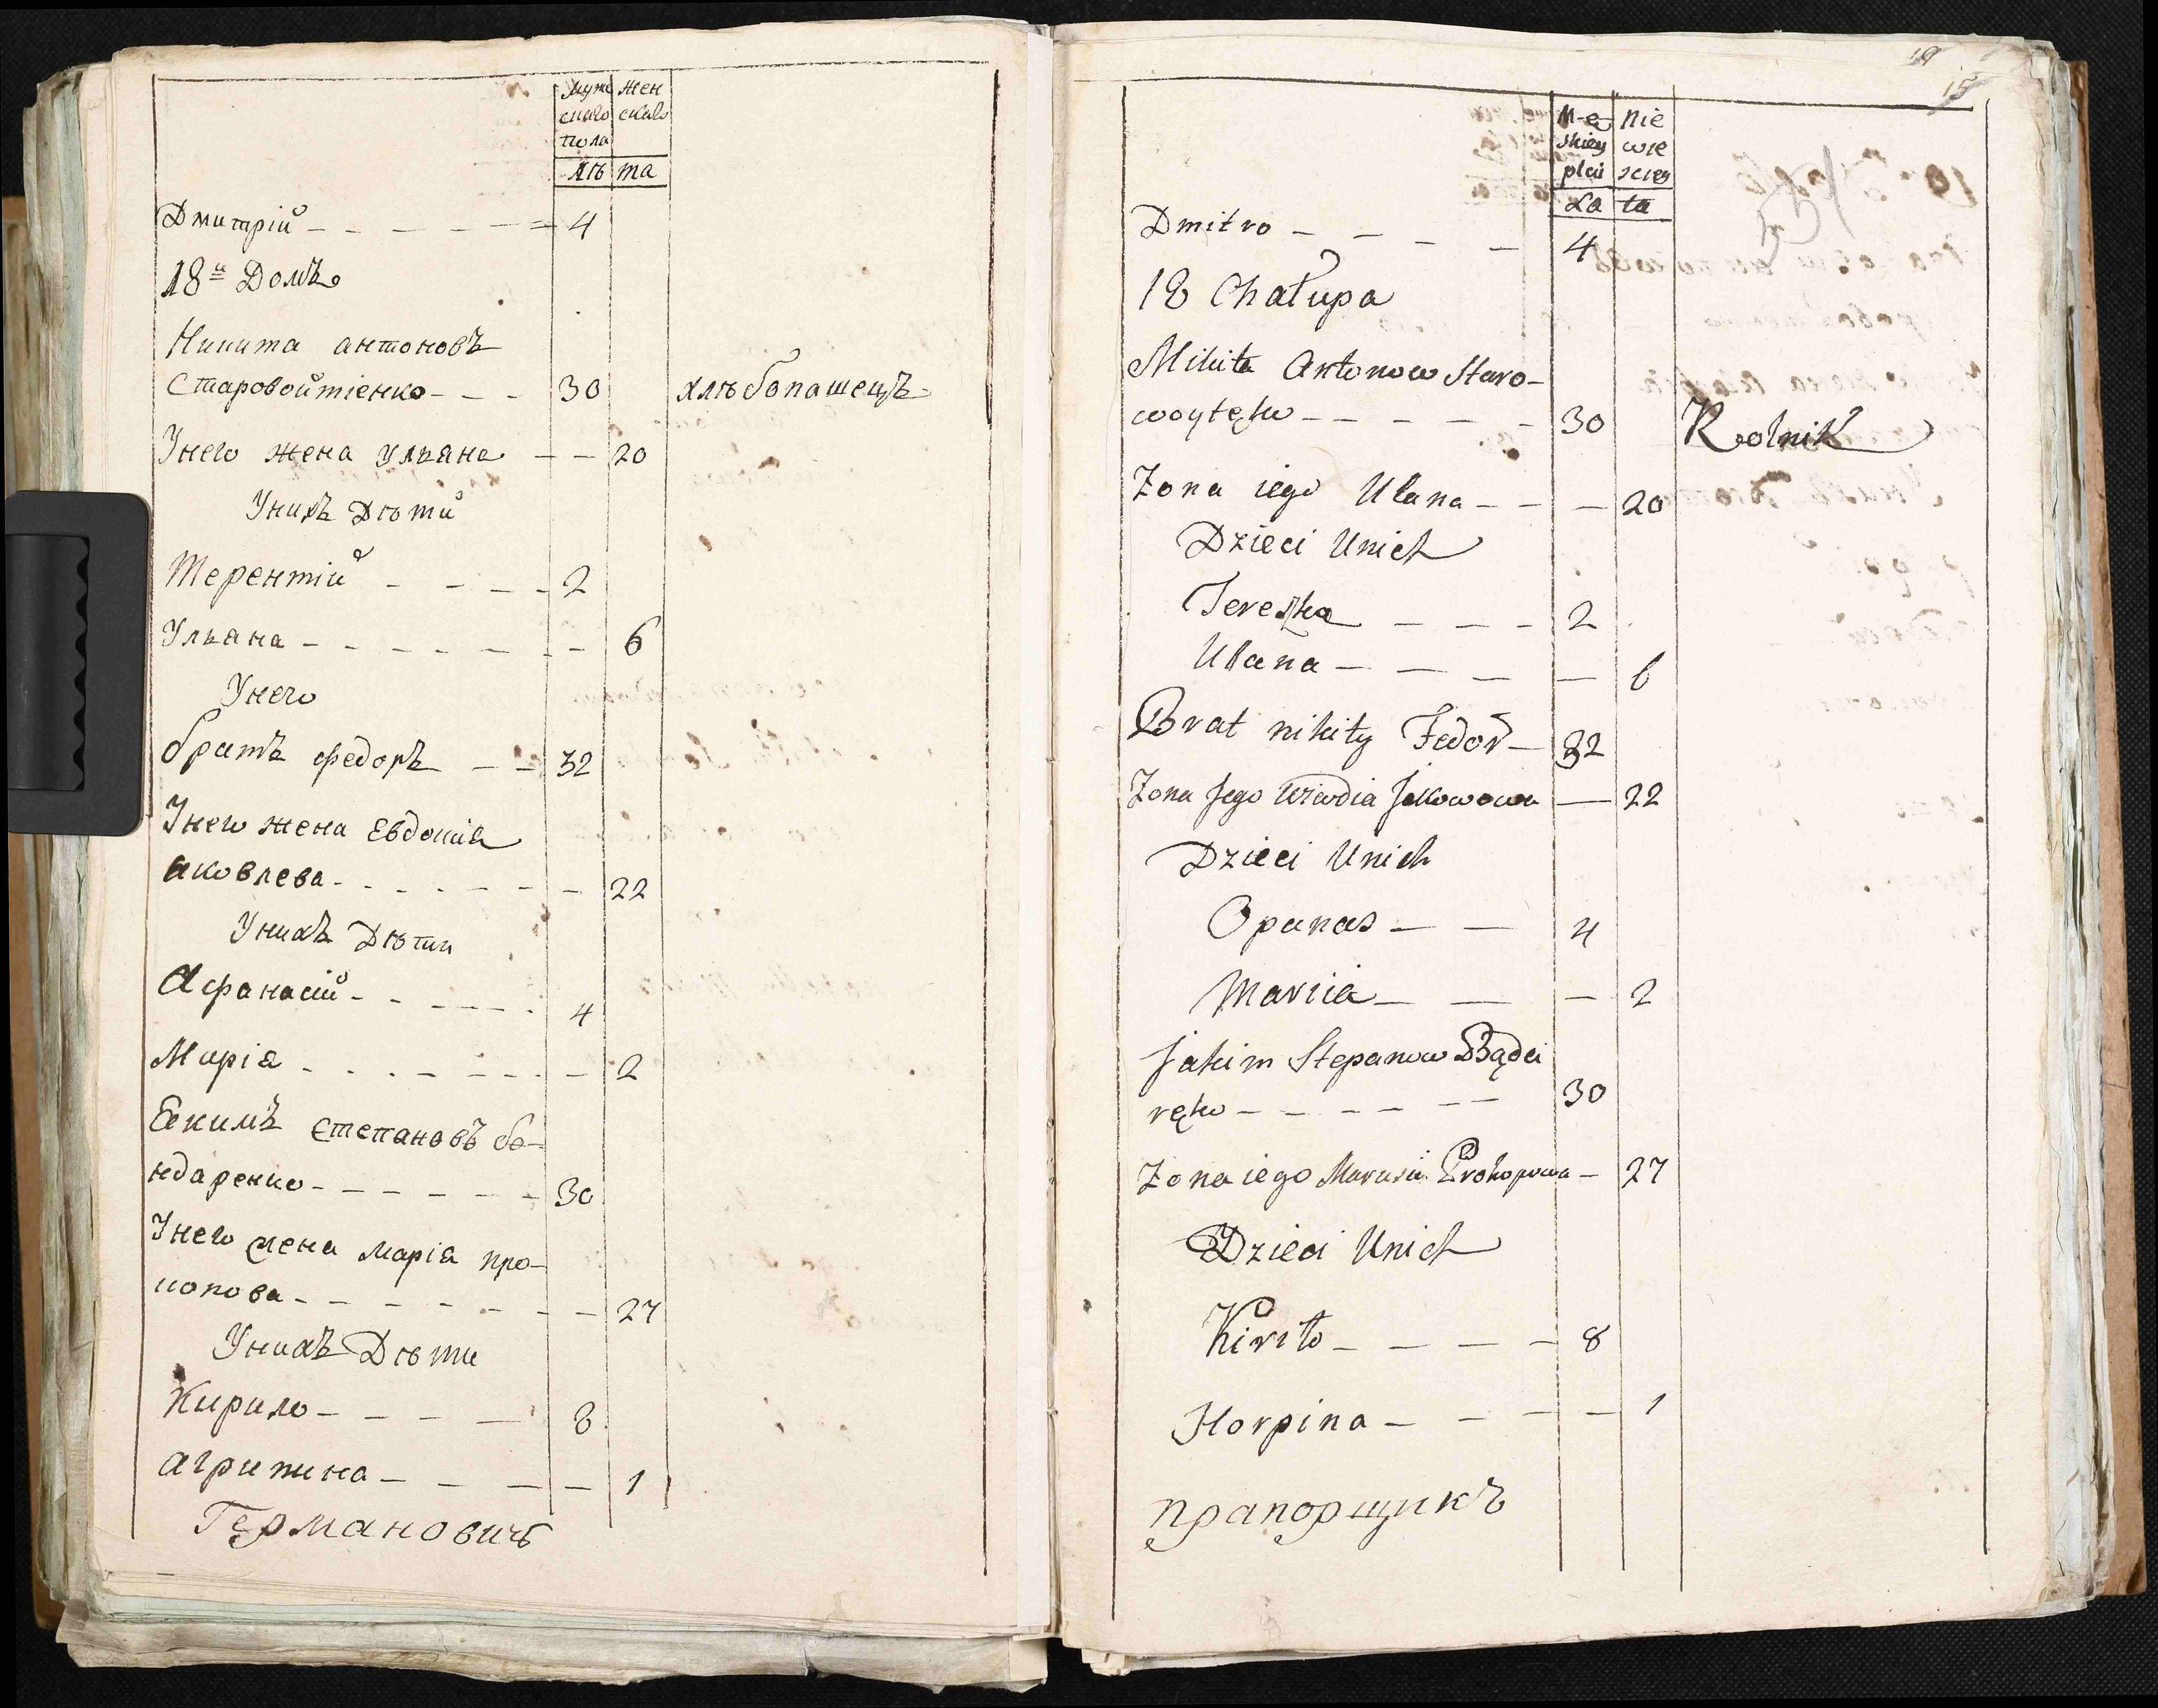 Муже жен
скаго скаго
пола
лѣ та
Дмитрій - - - - - - 4
18й Домъ
Никита антоновъ
Старовойтіенко - - - 30 хлѣбопашецъ
Унего жена ульяна - - 20
Унихъ Дѣти
Терентій - - - - 2
Ульяна - - - - - - - - 6
Унего
братъ федоръ - - 32
Унего жена Евдокия
яковлева - - - - - - - 22
Унихъ Дѣти
Афанасий - - - - - 4
Марія - - - - - - - - 2
Екимъ степановъ бо-
ндаренко - - - - - - 30
Унего жена Марія про-
копова - - - - - - - - 27
Унихъ Дѣти
Кирило - - - - 8
агрипина - - - - - 1
Германовичъ
19
15
M-ę nie
skiey wie
płci sciey
La ta
Dmitro - - - - 4
18 Chałupa
Mikita Antonow Staro-
woytęko - - - - - 30 Rolnik
Zona iego Ulana - - - 20
Dzieci Unich
Tereszka - - - - 2
Ulana - - - - 6
Brat nikity Fedor - 32
Zona jego Jakowowa - 22
Dzieci Unich
Opanas - - 4
Mariia - - - 2
Jakim Stepanow Bąda
ręko - - - - - - 30
Zona iego Marusia Prokopowa - 27
Dzieci Unich
Kiriło - - - - 8
Horpina - - - - 1
прапорщикъ